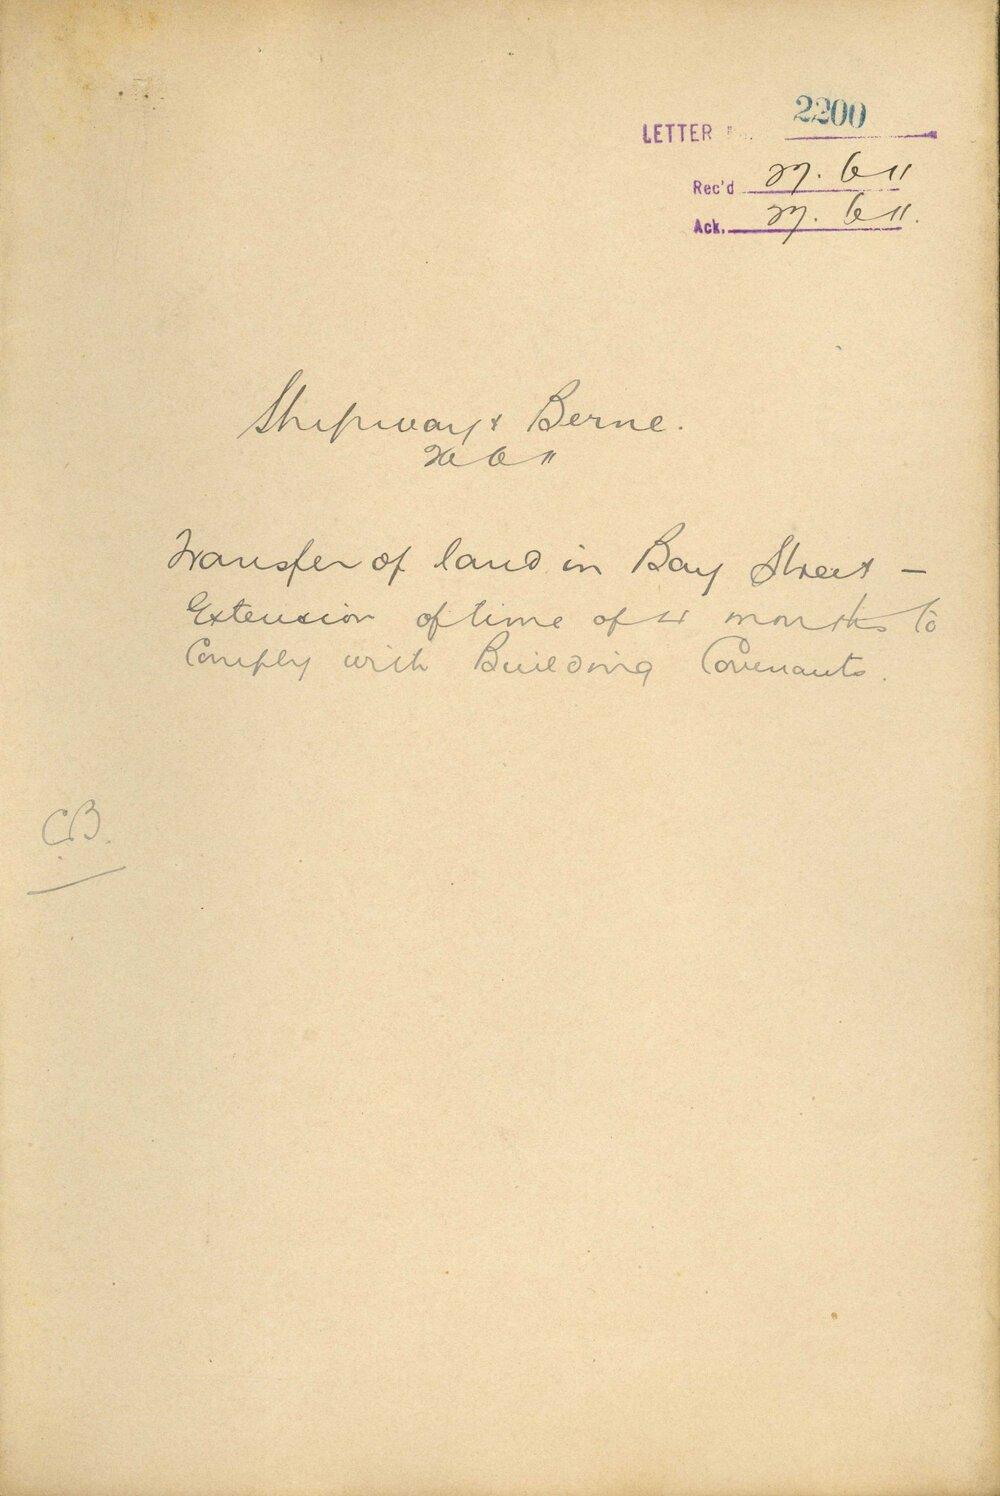 LETTER No. 2200
Rec'd 27. 6 11
Ack. 27. 6 11.
Shipway & Berne.
26 6 11
Transfer of land in Bay Street –
Extension of time of 4 months to
Comply with Building Covenants.
C.B.